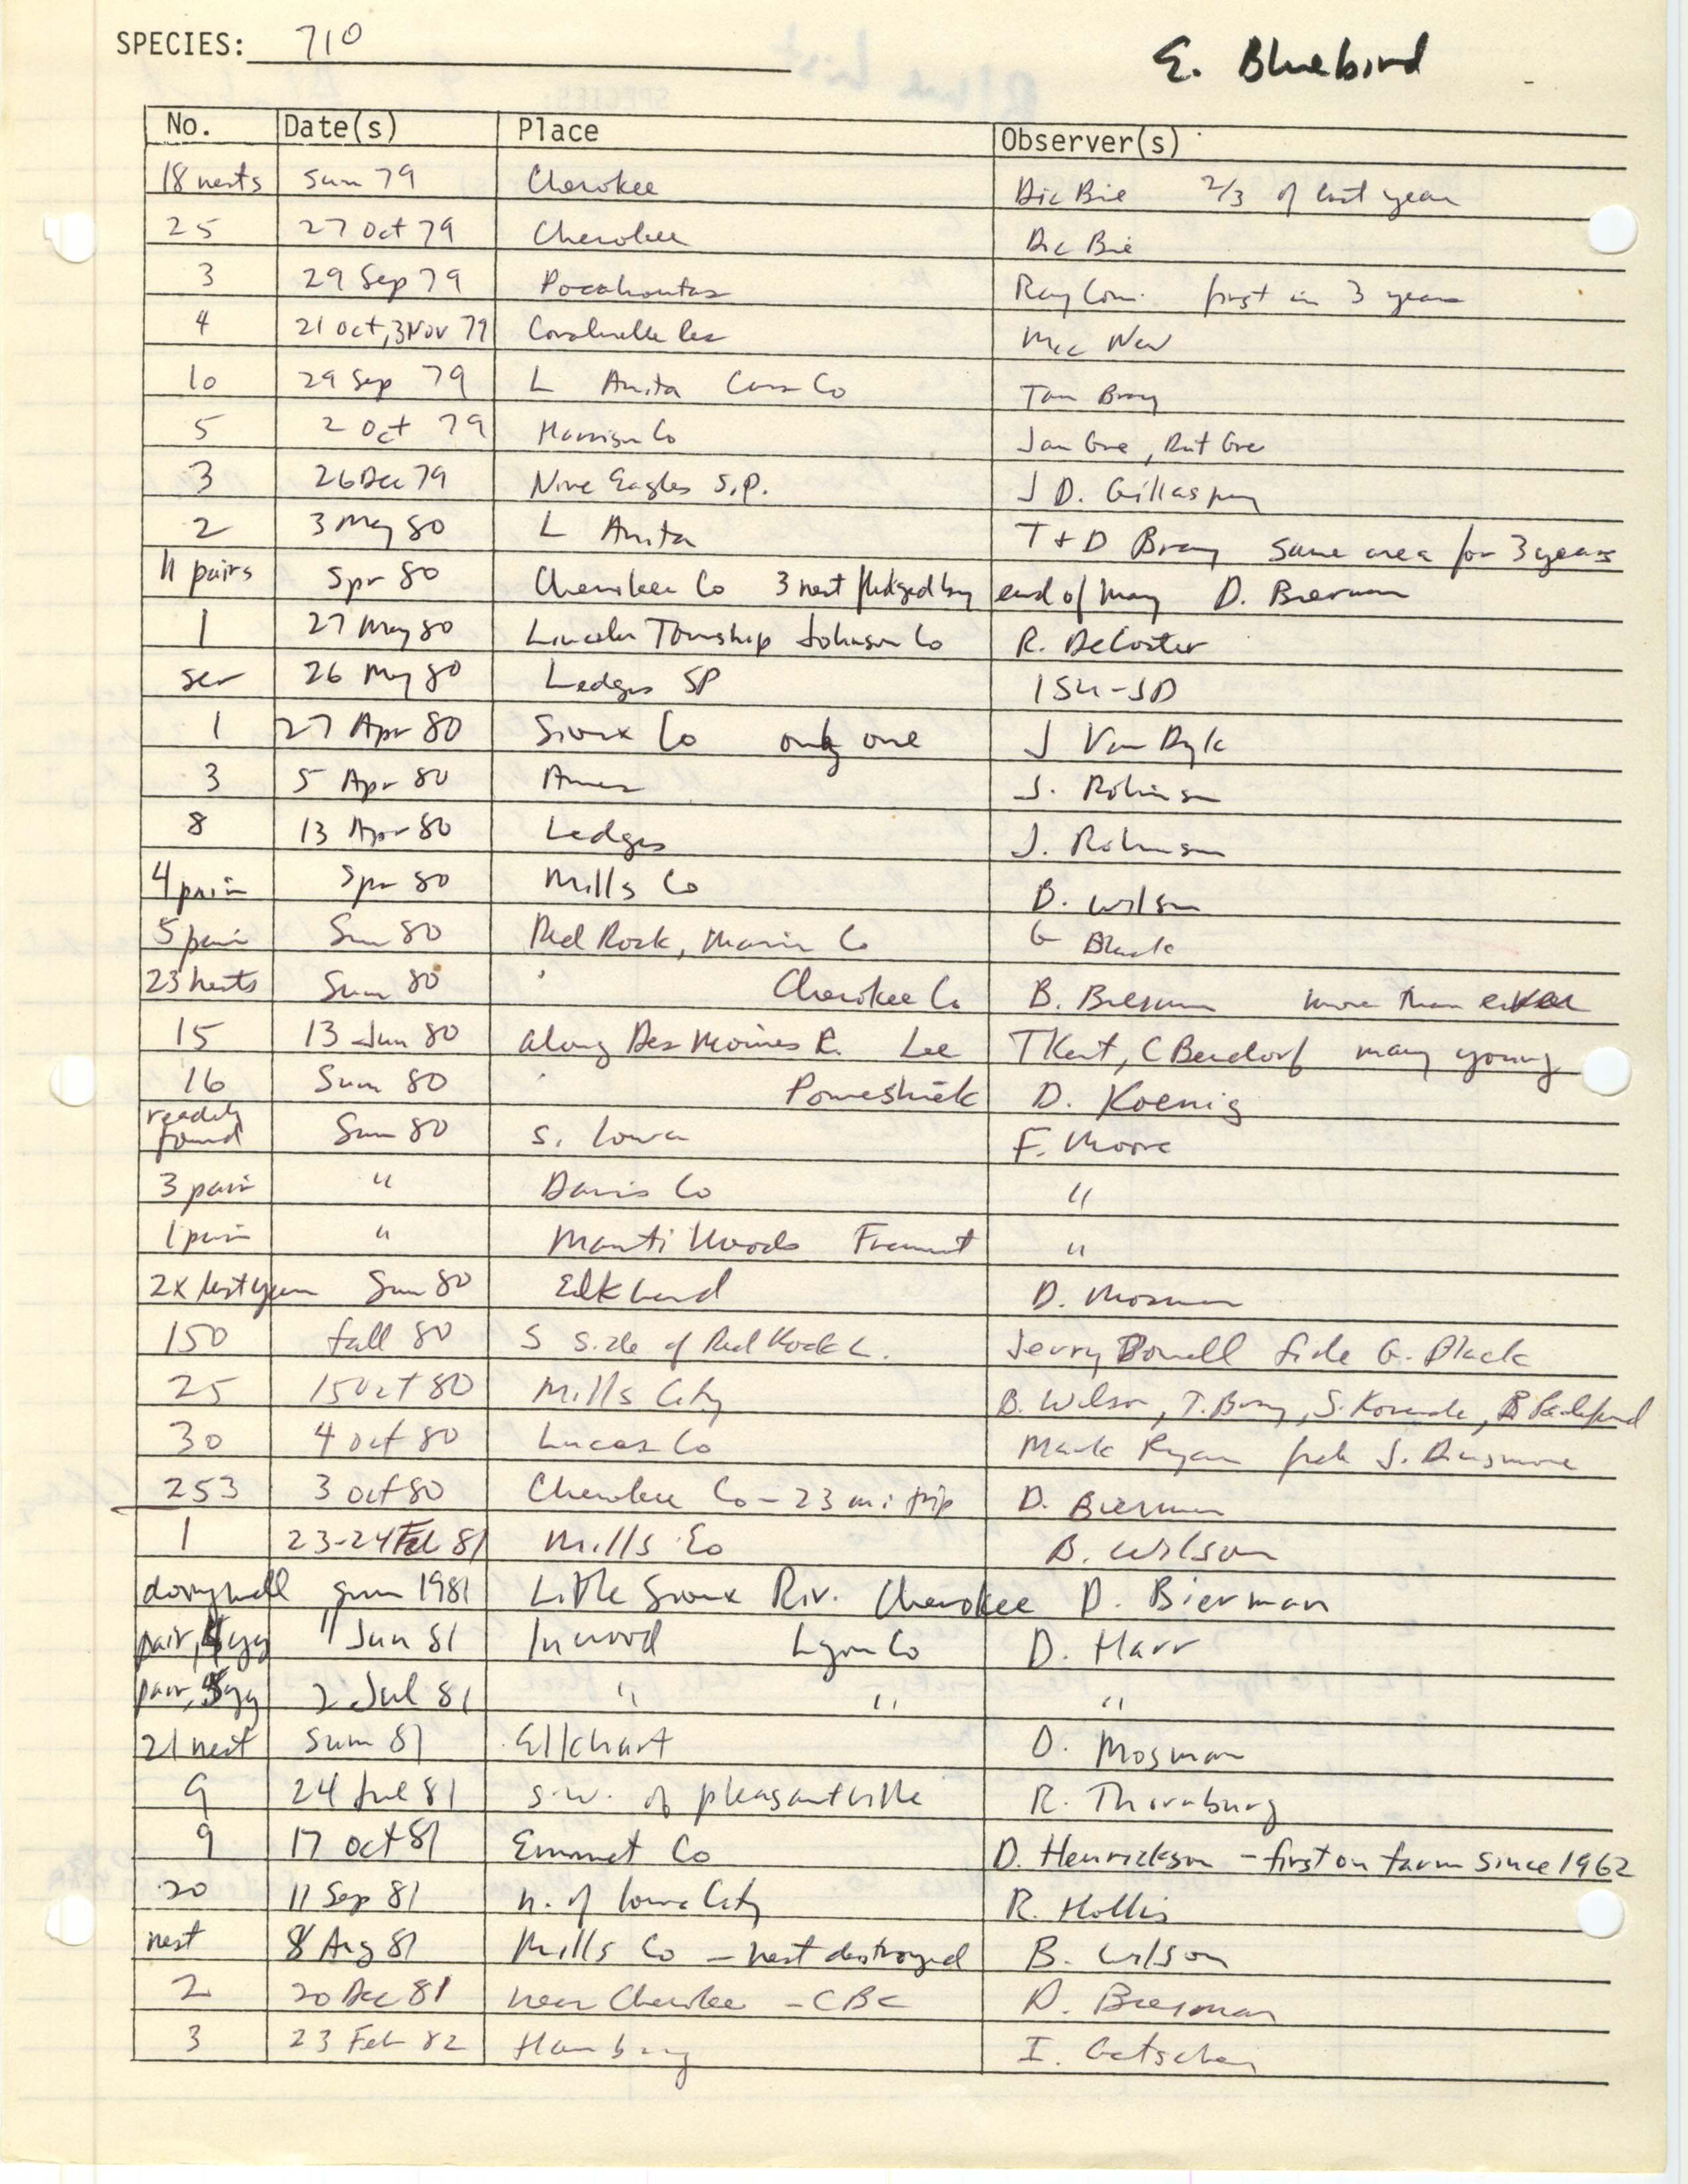 SPECIES: 710
E. Bluebird
No. Date(s) Place Observer(s)
18 nests Sum 79 Cherokee Dic Bie 2/3 of last year
25 27 Oct 79 Cherokee Dic Bie
3 29 Sep 79 Pocahontas Ray first in 3 years
4 21 Oct, 3 Nov 79 Coralville Res Mic New
10 29 Sep 79 L Anita Cass Co Tan Bray
5 2 Oct 79 Harrison Co Jan Gre, Rut Gre
3 26 Dec 79 Nine Eagles S.P. J D. Gillaspey
2 3 May 80 L Anita T + D Bray same area for 3 years
11 pairs Spr 80 Cherokee Co 3 nest fledged by end of May D. Bierman
1 27 May 80 Lincoln Township Johnson Co R. DeCoster
ser 26 May 80 Ledges SP ISU-JD
1 27 Apr 80 Sioux Co only one J Van Dyk
3 5 Apr 80 Ames J. Robinson
8 13 Apr 80 Ledges J. Robinson
4 pair Spr 80 Mills Co B. Wilson
5 pair Sum 80 Red Rock, Marion Co G Black
23 nests Sum 80 Cherokee Co B. Bierman more than ever
15 13 Jun 80 along Des Moines R. Lee T Kent, C Bendorf many young
16 Sum 80 Poweshiek D. Koenig
readily found Sum 80 S. Iowa F. Moore
3 pair " Davis Co "
1 pair " Manti Woods Fremont "
2x last year Sum 80 Elkhard D. Mosman
150 fall 80 S side of Red Rock L. Jerry Dowell fide G. Black
25 15 Oct 80 Mills City B. Wilson, T. Bray, S. Kovanda, B Padelford
30 4 Oct 80 Lucas Co Mark Ryan fide J. Dinsmore
253 3 Oct 80 Cherokee Co - 23 mi trip D. Bierman
1 23-24 Feb 81 Mills Co B. Wilson
doing well sum 1981 Little Sioux Riv. Cherokee D. Bierman
pair, 4 yg 11 Jun 81 Inwood Lyon Co D. Harr
pair, 5 yg 2 Jul 81 " " "
21 nest Sum 81 Elkhart D. Mosman
9 24 Jul 81 s.w. of pleasantville R. Thornburg
9 17 Oct 81 Emmet Co D. Henrickson - first on farm since 1962
20 11 Sep 81 n. of Iowa City R. Hollis
nest 8 Aug 81 Mills Co - nest destroyed B. Wilson
2 20 Dec 81 near Cherokee - CBC D. Bierman
3 23 Feb 82 Hamburg I. Getscher